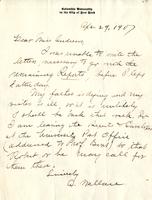 Columbia University
in the City of New York
Apr. 29, 1907
Dear Miss Andrews,
I was unable to write the
letter necessary to go with the
remaining Reports before I left
Saturday.
My father is dying and my
sister is ill, or it is unlikely
I shall be back this week. So
I am leaving the
at the University Post Office
addressed to Prof. so that
Robert or he may call for
them there.
Sincerely
B. Wallace